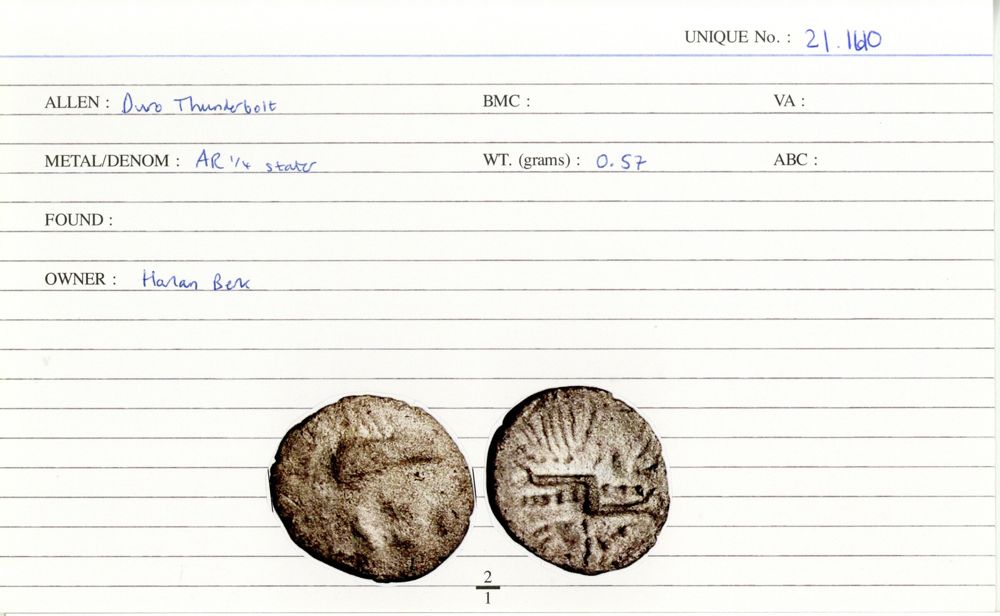 UNIQUE No. : 21.1610
ALLEN : Duro Thunderbolt BMC : VA :
METAL/DENOM : AR 1/4 stater WT. (grams) : 0.57 ABC :
FOUND :
OWNER : Harlan Berk
2
1